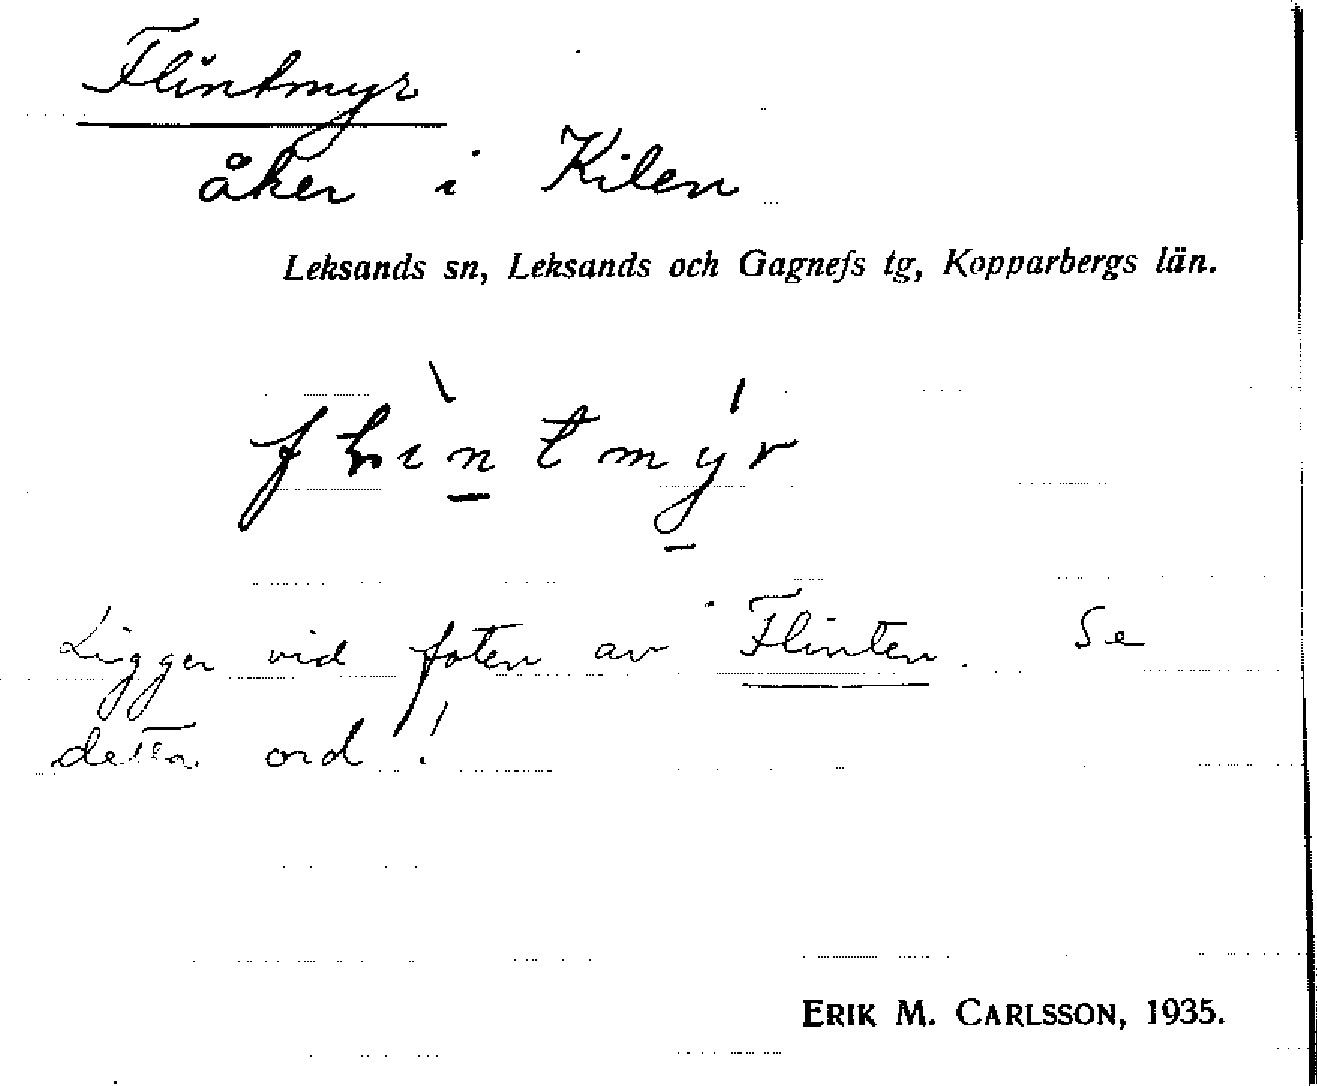 Flintmyr
åker i Kilen
Leksands sn, Leksands och Gagnefs tg, Kopparbergs län.
Ligger vid foten av Flinten. Se
detta ord!
ERIK M. CARLSSON, 1935.